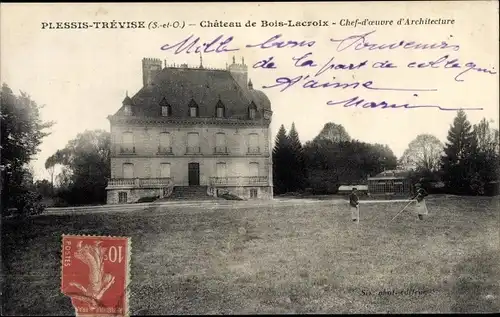 PLESSIS-TRÉVISE (S.-et-O.) - Château de Bois-Lacroix - Chef-d'œuvre d'Architecture
Mille bons Souvenirs
de la part de
J'aime
10c